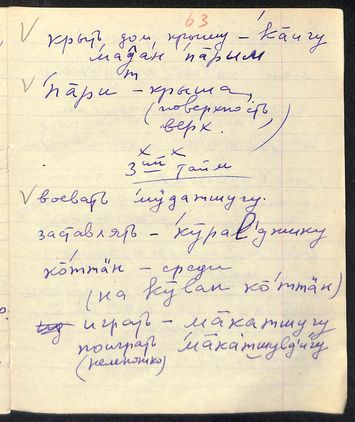 63
крыть дом, крышу – ка̄игу
ма̄дан па̄рым
па̄ри – крыша
(поверхность,
верх.)
х х
3ий тайм
воевать мӱдатшугу.
заставлять – кӯралджику
кӧ̄ттӓн – среди
(на кӯван кӧ̄ттӓн)
играть – ма̄катшугу
поиграть ма̄катшувд'игу
(немножко)